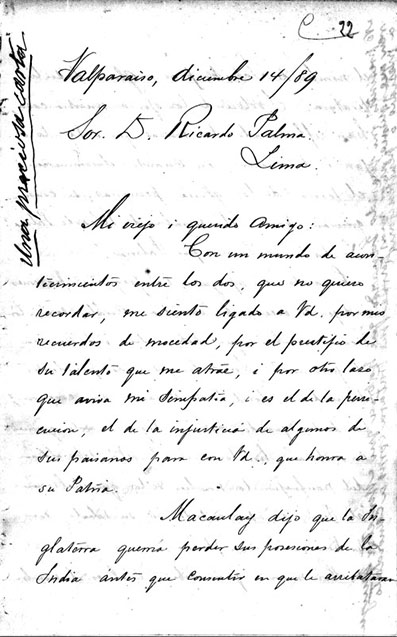 C. 22
Una preciosa carta
Valparaiso, diciembre 14/89
Sor. D. Ricardo Palma.
Lima.
Mi viejo i querido amigo:
Con un mundo de acon-
tecimientos entre los dos, que no quiero
recordar, me siento ligado a Vd. por mis
recuerdos de mocedad, por el prestijio de
su talento que me atrae, i por otro laso
que aviva mi simpatía, i es el de la perse-
cucion, el de la injusticia de algunos de
sus paisanos para con Vd., que honra a
su Patria.
Macaulay dijo que la In-
glaterra querria perder sus posesiones de la
India ántes que consentir en que le arrebataran